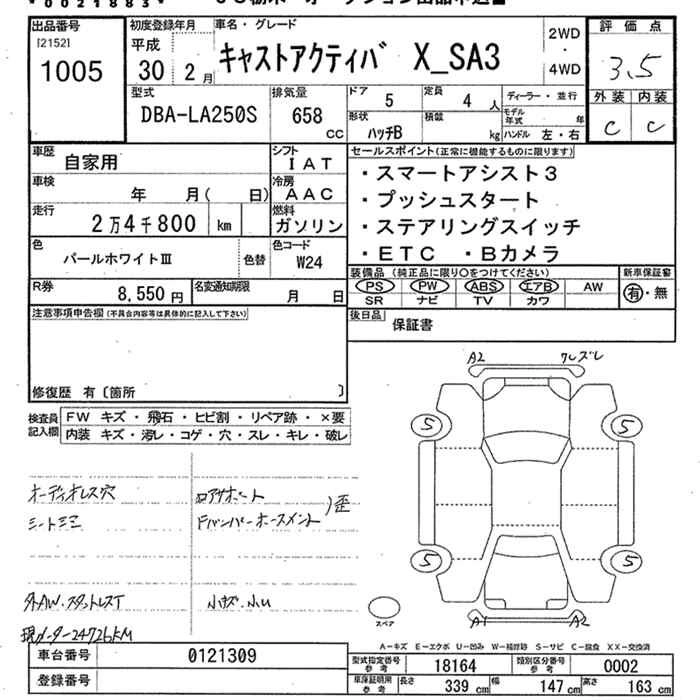 * 0 0 2 1 8 8 3 *
出品番号 初度登録年月 車名・グレード 2WD・4WD 評価点
[2152] 平成
1005 30年 2月 キャストアクティバ X_SA3 3.5
型式 排気量 ドア 5 定員 4人 ディーラー・並行 外装 内装
DBA-LA250S 658cc 形状 ハッチB 積載 kg モデル年式 年 ハンドル 左・右 C C
車歴 自家用 シフト IAT セールスポイント(正常に機能するものに限ります)
車検 年 月( 日) 冷房 AAC ・スマートアシスト3
・プッシュスタート
走行 2万4千800 km 燃料 ガソリン ・ステアリングスイッチ
色 パールホワイトⅢ 色替 色コード W24 ・ETC ・Bカメラ
装備品(純正品に限り○をつけてください) 新車保証書
R券 8,550円 名変通知期限 月 日 PS PW ABS エアB AW 有・無
SR ナビ TV カワ
注意事項申告欄(不具合内容等は具体的に記入して下さい) 後日品 保証書
修復歴 有〔箇所 〕
検査員記入欄 FW キズ・飛石・ヒビ割・リペア跡・×要
内装 キズ・汚レ・コゲ・穴・スレ・キレ・破レ
A2
5 5
オーディオレス穴
5 5
外AW.スタットレスT
小キズ.小U
スペア A1 A2
現メーター24726KM
A-キズ E-エクボ U-凹み W-補修跡 S-サビ C-腐食 XX-交換済
車台番号 0121309 型式指定番号 参考 18164 類別区分番号 参考 0002
登録番号 車庫証明用 参考 長さ 339cm 幅 147cm 高さ 163cm